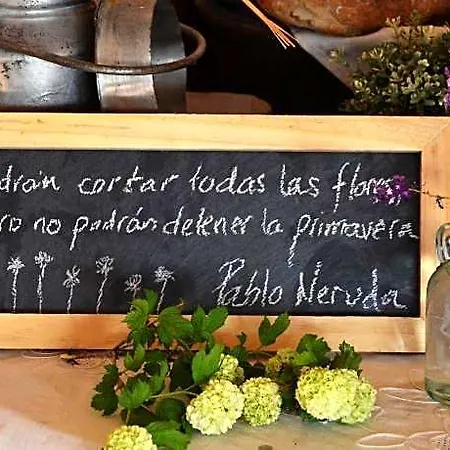 drán cortar todas las flores
ro no podrán detener la primavera
Pablo Neruda